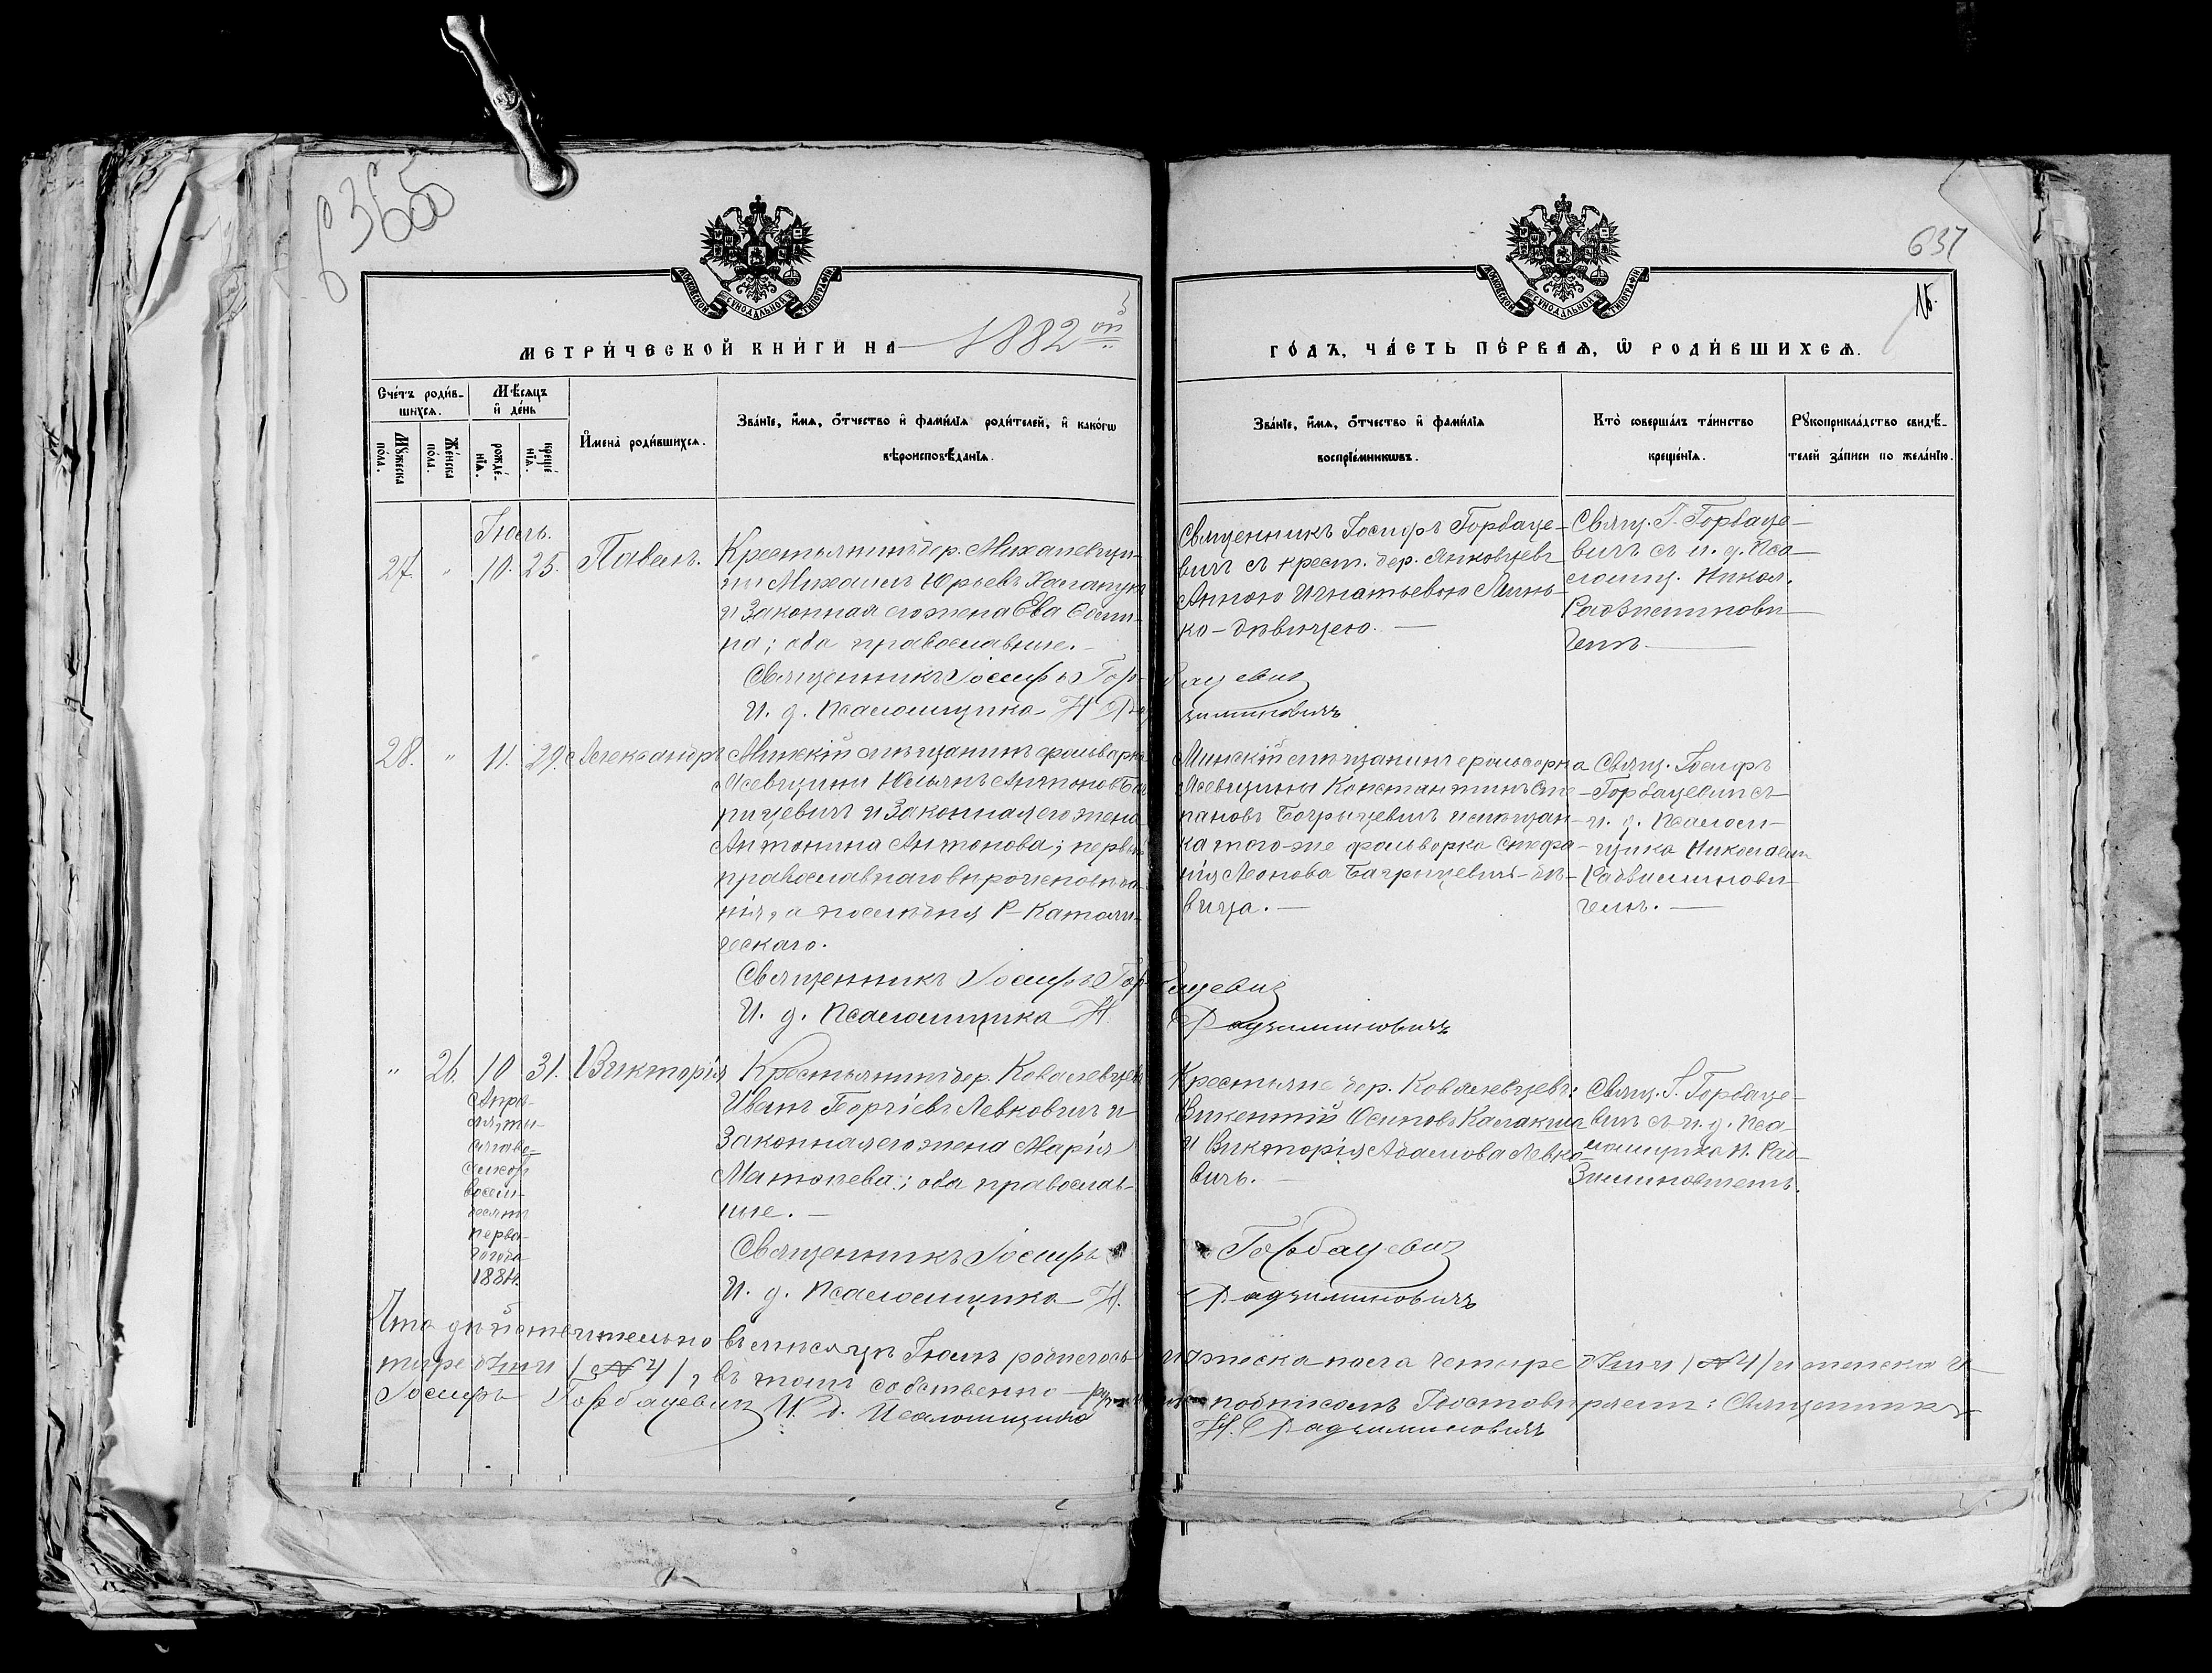 6365
637
15.
МОСКОВСКОЙ СУНОДАЛЬНОЙ ТИПОГРАФІИ
МОСКОВСКОЙ СУНОДАЛЬНОЙ ТИПОГРАФІИ
МЕТРИ́ЧЕСКОЙ КНИ́ГИ НА 1882ой
ГО́ДЪ, ЧА́СТЬ ПЕ́РВАЯ, Ѡ РОДИ́ВШИХСЯ.
Сче́тъ роди́в-
шихся.
Мѣ́сяцъ
и҆ де́нь
Му́жеска
по́ла.
Же́нска
по́ла.
рожде́-
нїя.
креще́
нїя.
И҆мена̀ роди́вшихся.
Зва́нїе, и҆́мя, ѻ҆́тчество и҆ фами́лїя роди́телей, и҆ како́гѡ
вѣроисповѣ́данїя.
Зва́нїе, и҆́мя, ѻ҆́тчество и҆ фами́лїя
воспрїе́мникѡвъ.
Кто̀ соверша́лъ та́инство
креще́нїя.
Рукоприкла́дство свидѣ́-
телей за́писи по жела́нїю.
Іюль.
27. " 10. 25. Павелъ.
Крестьянинъ дер. Михалевщи-
ны Михаилъ Юрьевъ
и законная его жена Ева Осипо-
ва; оба православные.
Священникъ Іосифъ Горбацевичъ
И. д. Псаломщика Н. Радзиминовичъ
Священникъ Іосифъ Горбаце-
вичъ съ крест. дер. Янковцевъ
Анною Игнатьевою
ко - дѣвицею.
Свящ. І. Горбаце-
вичъ съ и. д. Пса-
ломщ. Никол.
Радзиминови-
чемъ
28. " 11. 29. Александръ
Минскій мѣщанинъ фольварка
Юльянъ Антоновъ Баг-
рицевичъ и законная его жена
Антонина Антонова; первый
православнаго вѣроисповѣда-
нія, а послѣдняя Р-Католи-
ческаго.
Священникъ Іосифъ Горбацевичъ
И. д. Псаломщика Н. Радзиминовичъ
Минскій мѣщанинъ фольварка
Константинъ Сте-
пановъ Багрицевичъ и мѣщан-
ка того-же фольварка Стефа-
нія Леонова Багрицевичъ - дѣ-
вица.
Свящ. Іосифъ
Горбацевичъ съ
и. д. Псалом-
щика Николаемъ
Радзиминови-
чемъ.
" 26. 10 31. Викторія
Апрѣ-
ля, ты-
сяча во-
семсотъ
восем-
десятъ
перва-
го года
1881
Крестьянинъ дер. Ковалевцевъ
Иванъ Георгіевъ Левковичъ и
законная его жена Марія
Матѳеева; оба православ-
ные.
Священникъ Іосифъ Горбацевичъ
И. д. Псаломщика Н. Радзиминовичъ
Крестьяне дер. Ковалевцевъ:
Викентій Осиповъ
и Викторія Адамова Левко-
вичъ.
Свящ. І. Горбаце-
вичъ съ и. д. Пса-
ломщика Н. Рад-
зиминовичемъ.
Что дѣйствительно въ мѣсяцѣ Іюлѣ родилось
тыре (№ 4), въ томъ собственно-руч подписомъ Удостовѣряемъ: Священникъ
Іосифъ Горбацевичъ И. д. Псаломщика Н. Радзиминовичъ